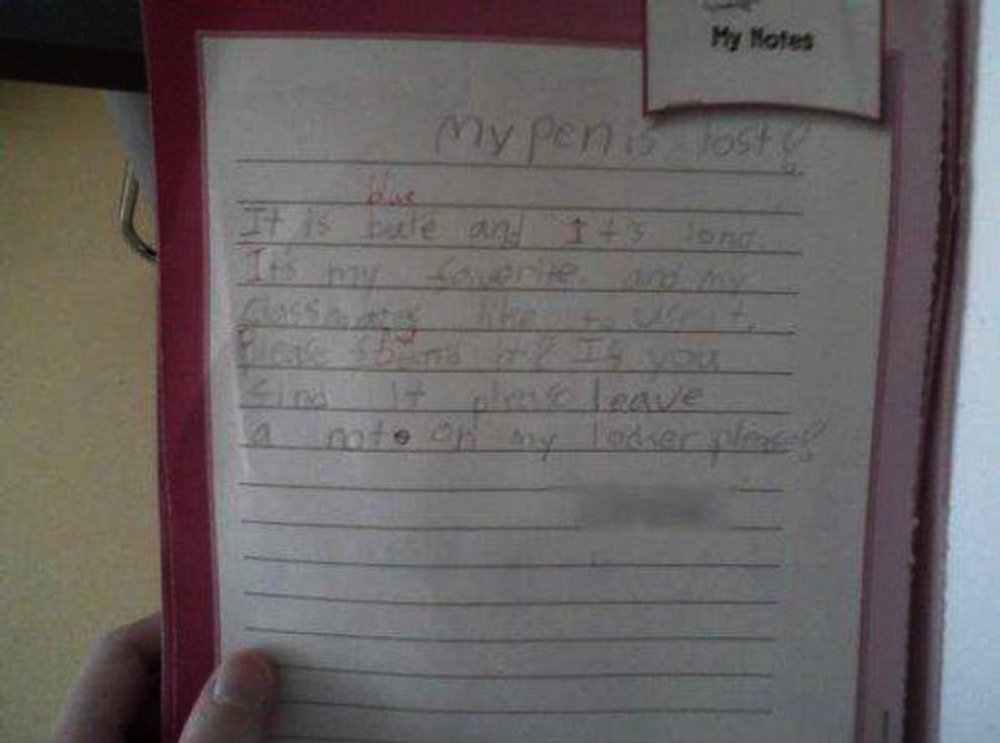 My Notes
My pen is lost!
blue
It is bule and It's long.
It's my favorite. and my
classmates like to use it.
Please find it? If you
find it please leave
a note on my locker please?